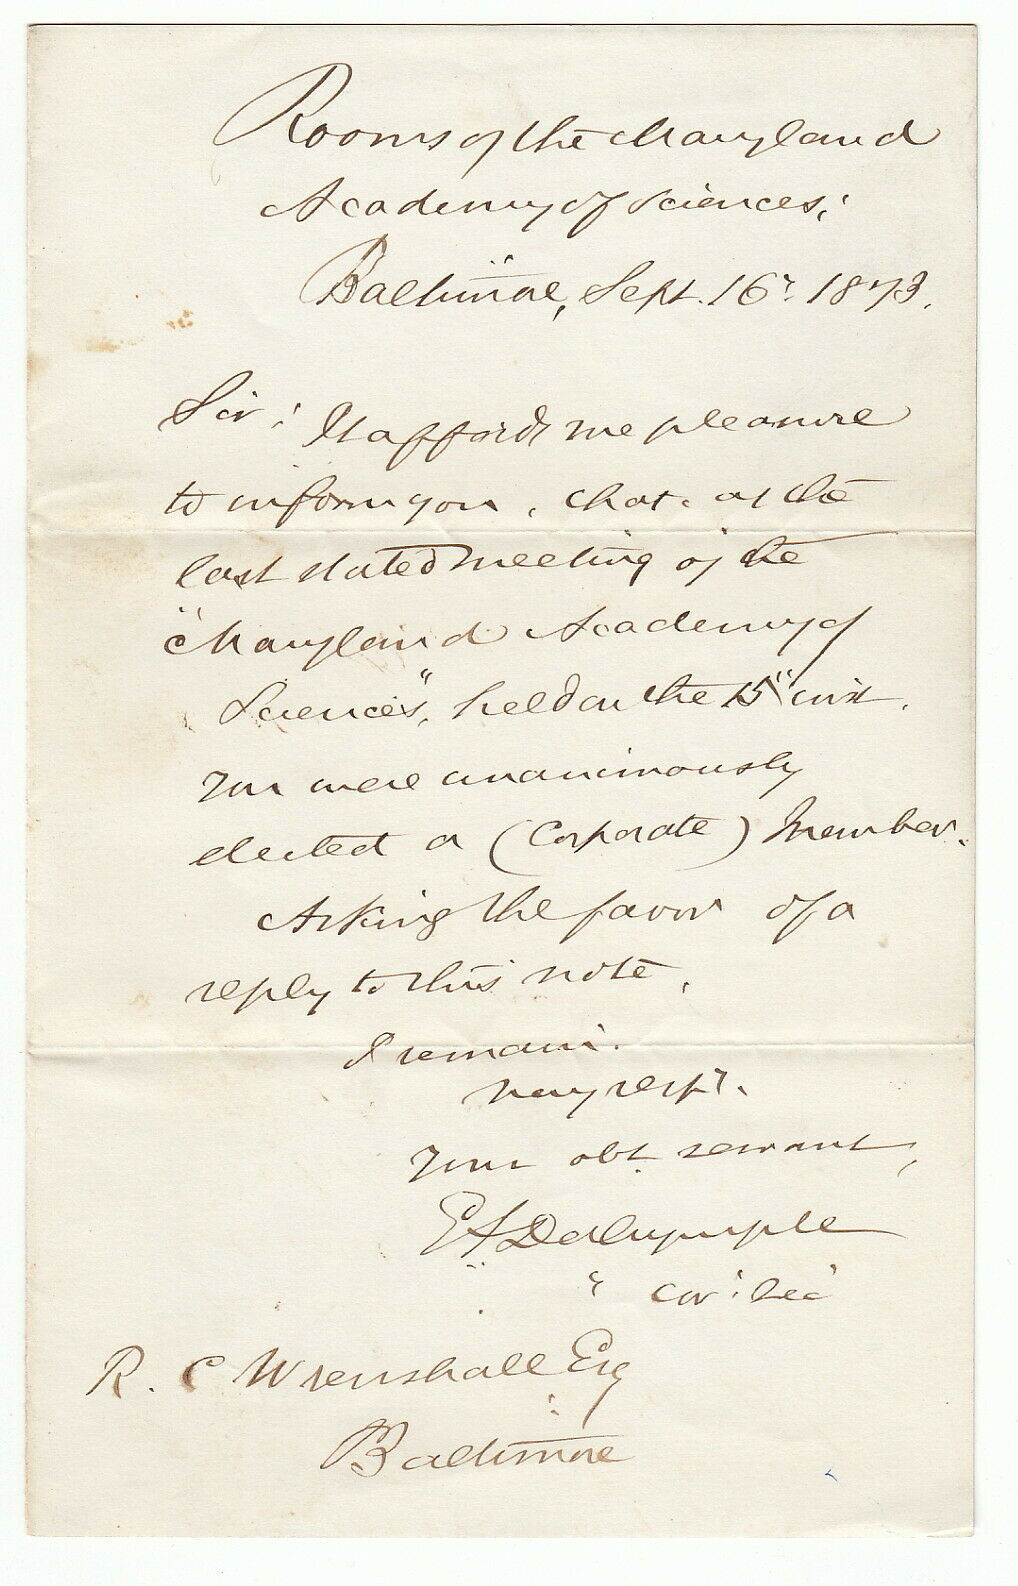 Rooms of the Maryland
Academy of Sciences;
Baltimore, Sept. 16th. 1873.
Sir: It affords me pleasure
to inform you, that, at the
last stated meeting of the
"Maryland Academy of
Sciences", held on the 15" inst.
you were unanimously
elected a (Corporate) Member.
Asking the favor of a
reply to this note,
I remain.
Very respt.
Your obt. servant,
E A Dalrymple
Cor: Sec
R. C Wrenshall Esq
Baltimore